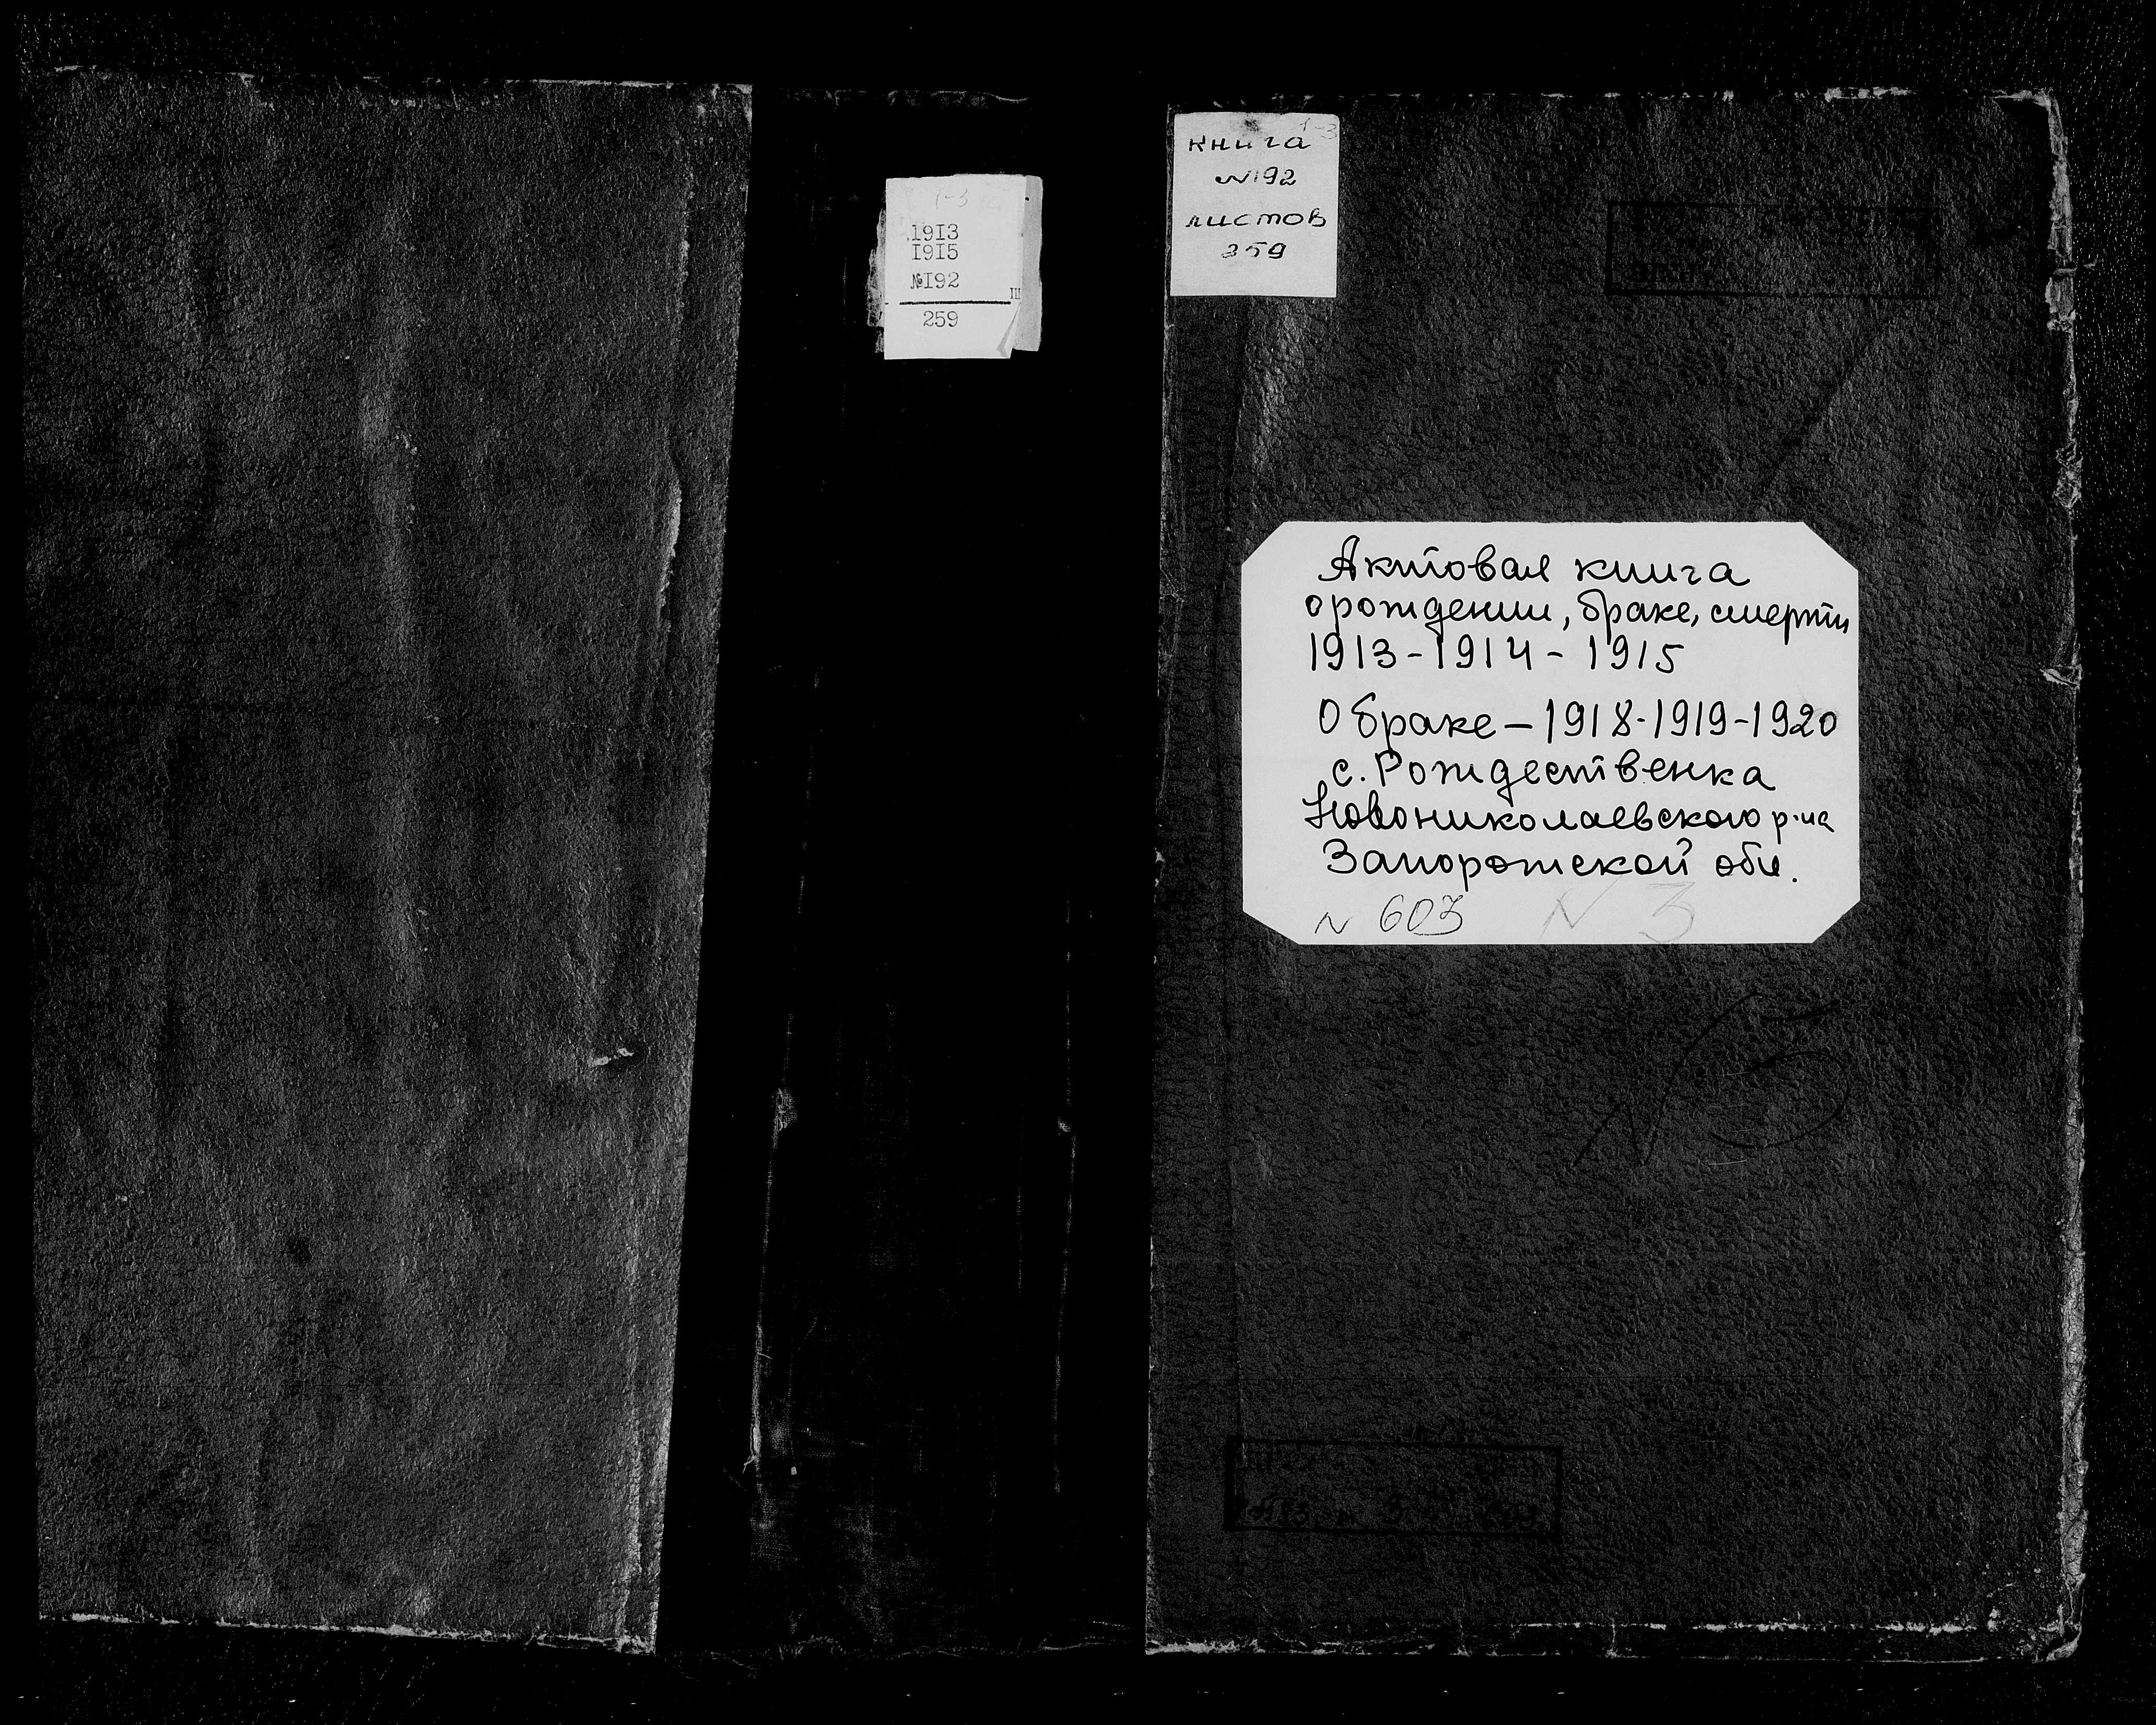 1-3
1913
1915
№192
III
259
1-3
книга
№192
листов
359
Актовая книга
о рождении, браке, смерти
1913-1914-1915
О браке - 1918-1919-1920
с. Рождественка
Новониколаевского р-на
Запорожской обл.
N 603 N 3
N 5